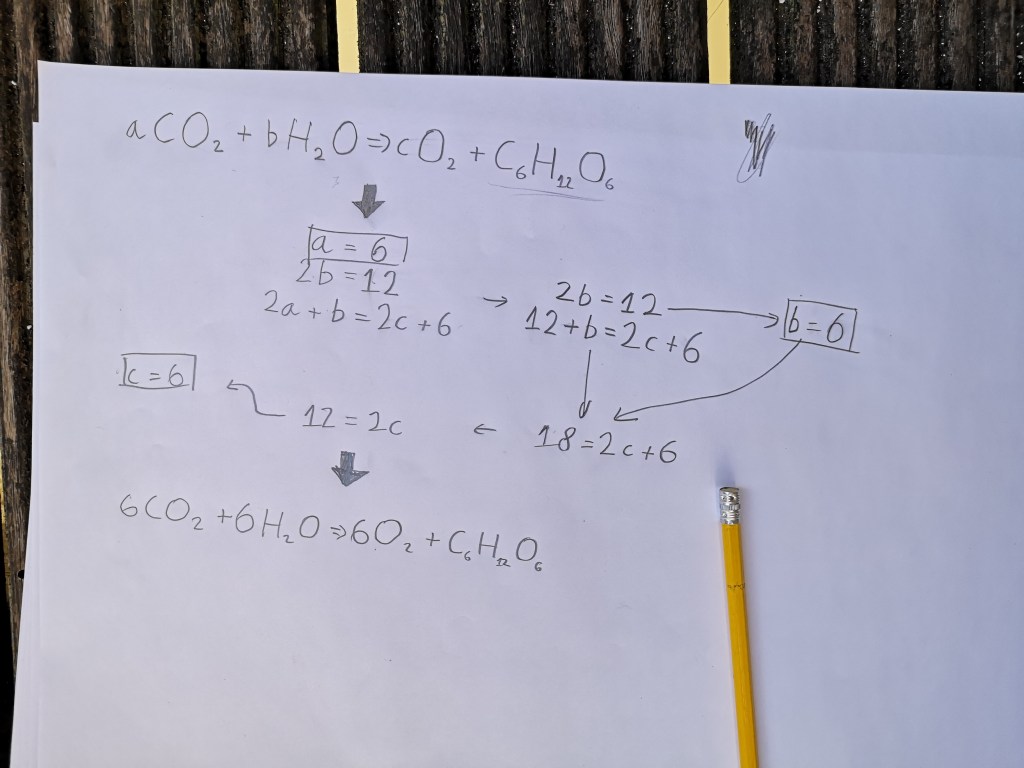 aCO₂ + bH₂O ⇒ cO₂ + C₆H₁₂O₆
a = 6
2b = 12
2a + b = 2c + 6
→
2b = 12 → b = 6
12 + b = 2c + 6
18 = 2c + 6
←
12 = 2c
c = 6
6CO₂ + 6H₂O ⇒ 6O₂ + C₆H₁₂O₆